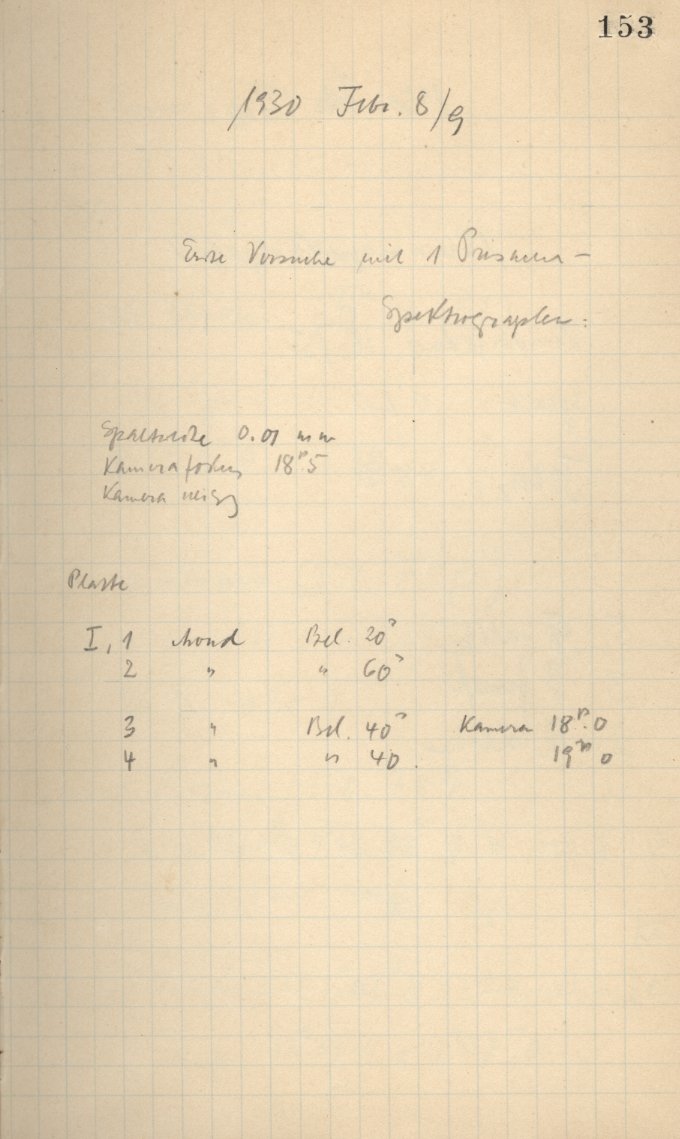 153
1930 Febr. 8/9
Erste Versuche mit 1 Prismen-
Spektrographen:
Spaltweite 0.01 mm
Kamerafokus 18 5
Kamera neigg
Platte
I, 1 Mond Bel. 20
2 " " 60
3 " Bel. 40 Kamera 18 .0
4 " " 40. 19 0